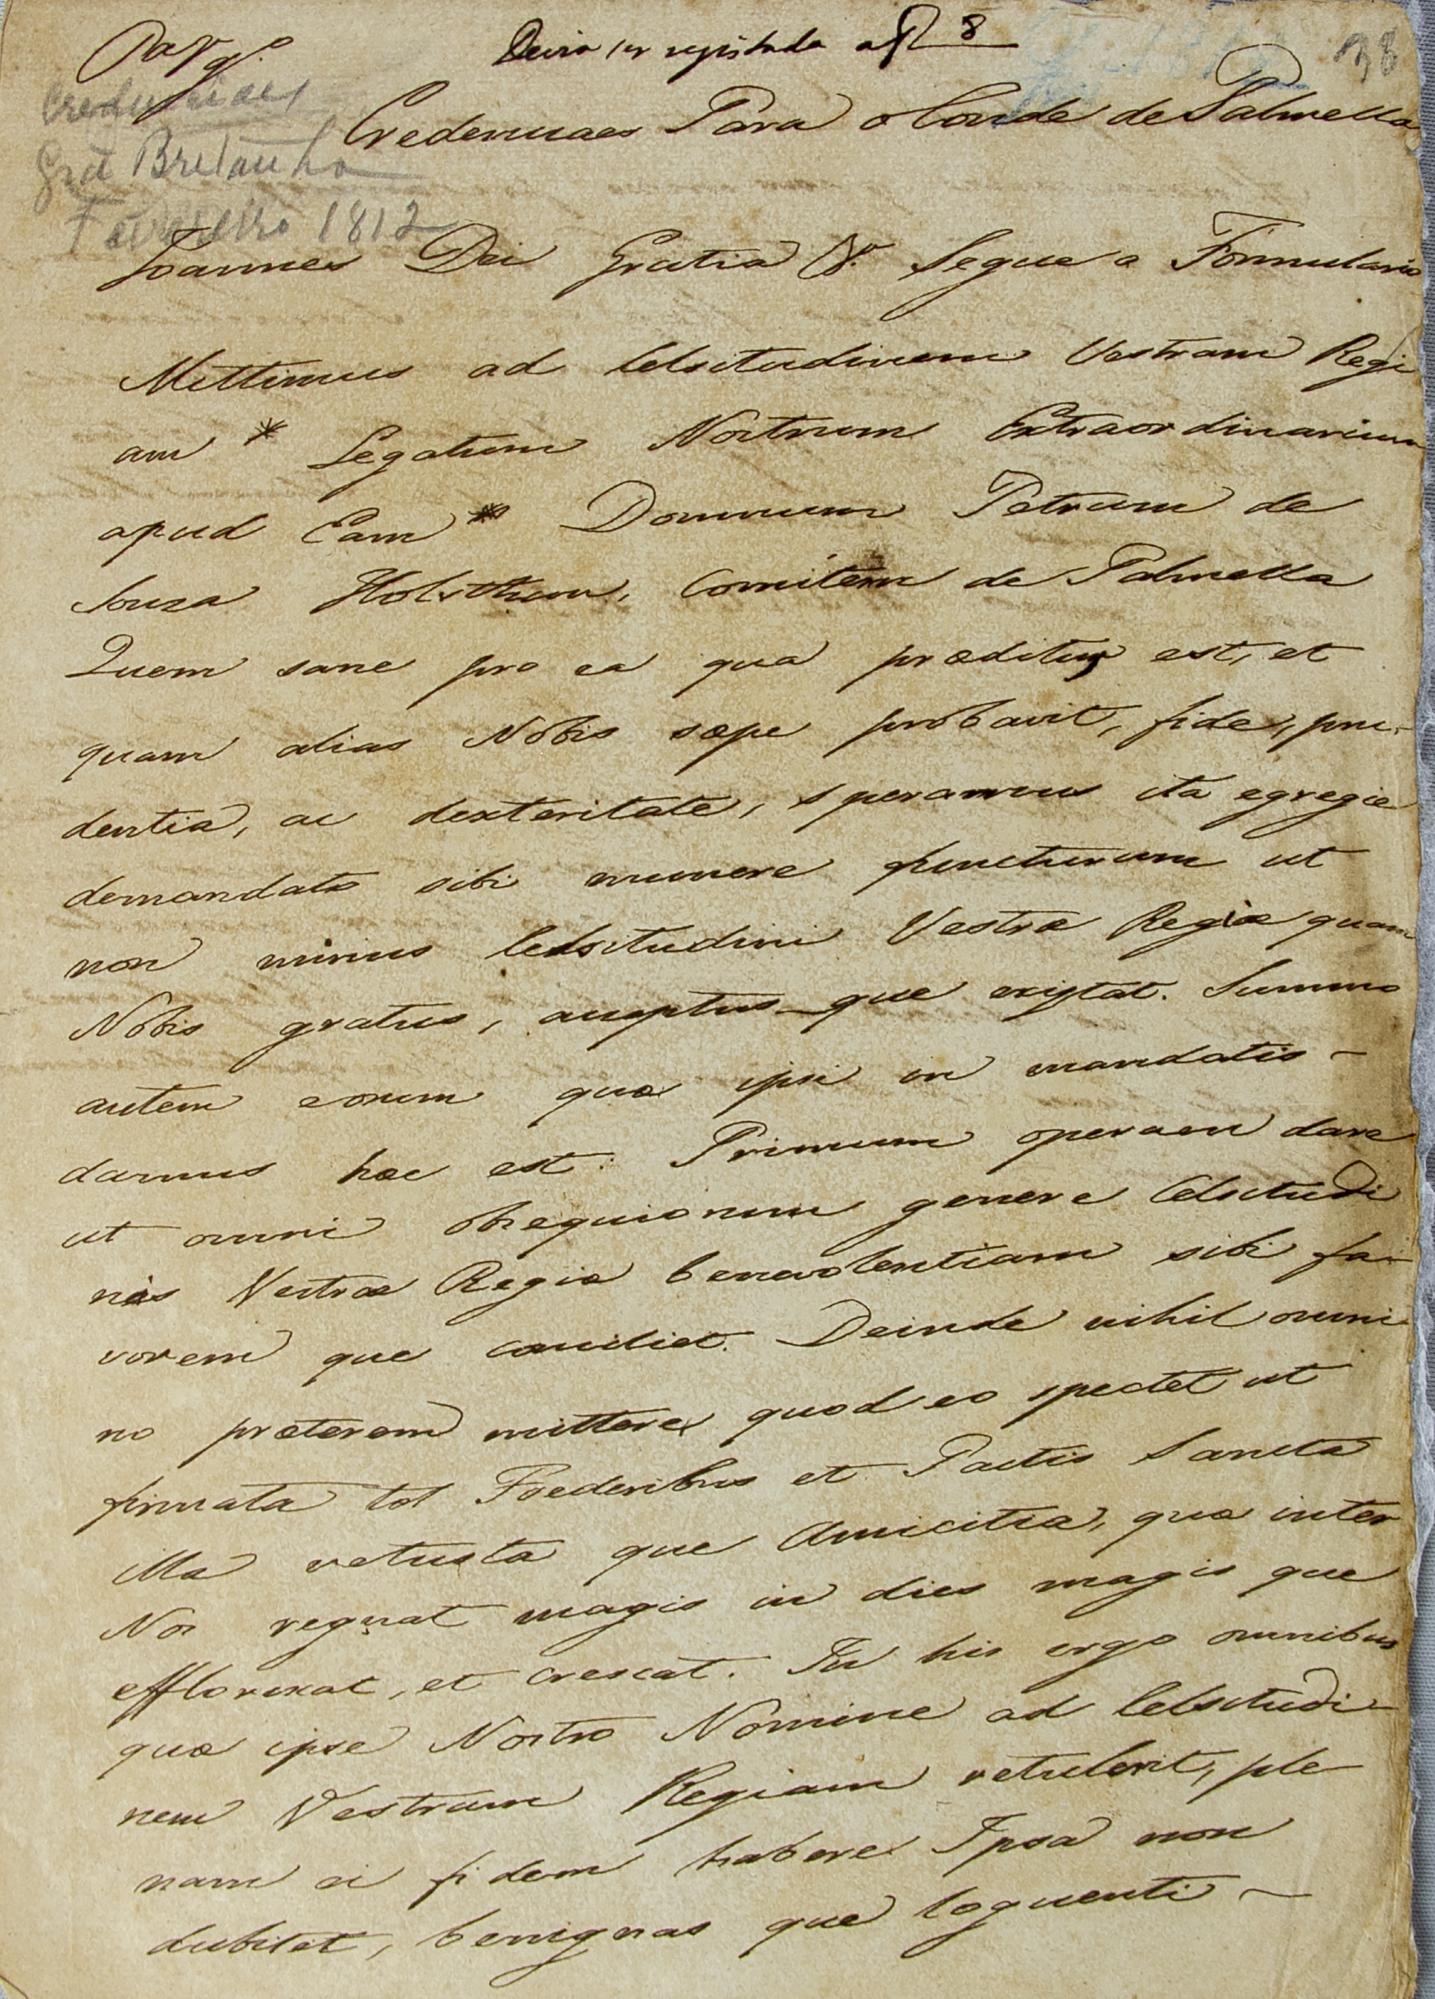 Devia ser registada a f 8
38
Credenciaes
Grã Bretanha
Fevereiro 1812
Credenciaes Para o Conde de Palmella
Joannes Dei Gratia &. Segue o Formulario
Mittimus ad Celsitudinem Vestram Regi
am * Legatum Nostrum Extraordinarium
apud Eam * Domnum Petrum de
Souza Holsthum, Comitem de Palmella
Quem sane pro ea qua præditus est, et
quam alias Nobis sæpe probavit, fide, pru-
dentia, ac dexteritate, speramus ita egregie
demandato sibi munere functurum ut
non minus Celsitudini Vestræ Regiæ quam
Nobis gratus, acceptus que existat. Summa
autem eorum quæ ipsi in mandatis -
damus hæc est: Primum operam dare
ut omni obsequiorum genere Celsitudi
nis Vestræ Regiæ benevolentiam sibi fa-
vorem que conciliet. Deinde nihil omni-
no præterem mittere, quod eo spectet ut
firmata tot Foederibus et Pactis Sancta
illa vetusta que Amicitia, quæ inter
Nos regnat magis in dies magis que
efflorescat, et crescat. In his ergo omnibus
quæ ipse Nostro Nomine ad Celsitudi-
nem Vestram Regiam retulerit, ple
nam ei fidem habere Ipsa non
dubitet, benignas que loquenti -